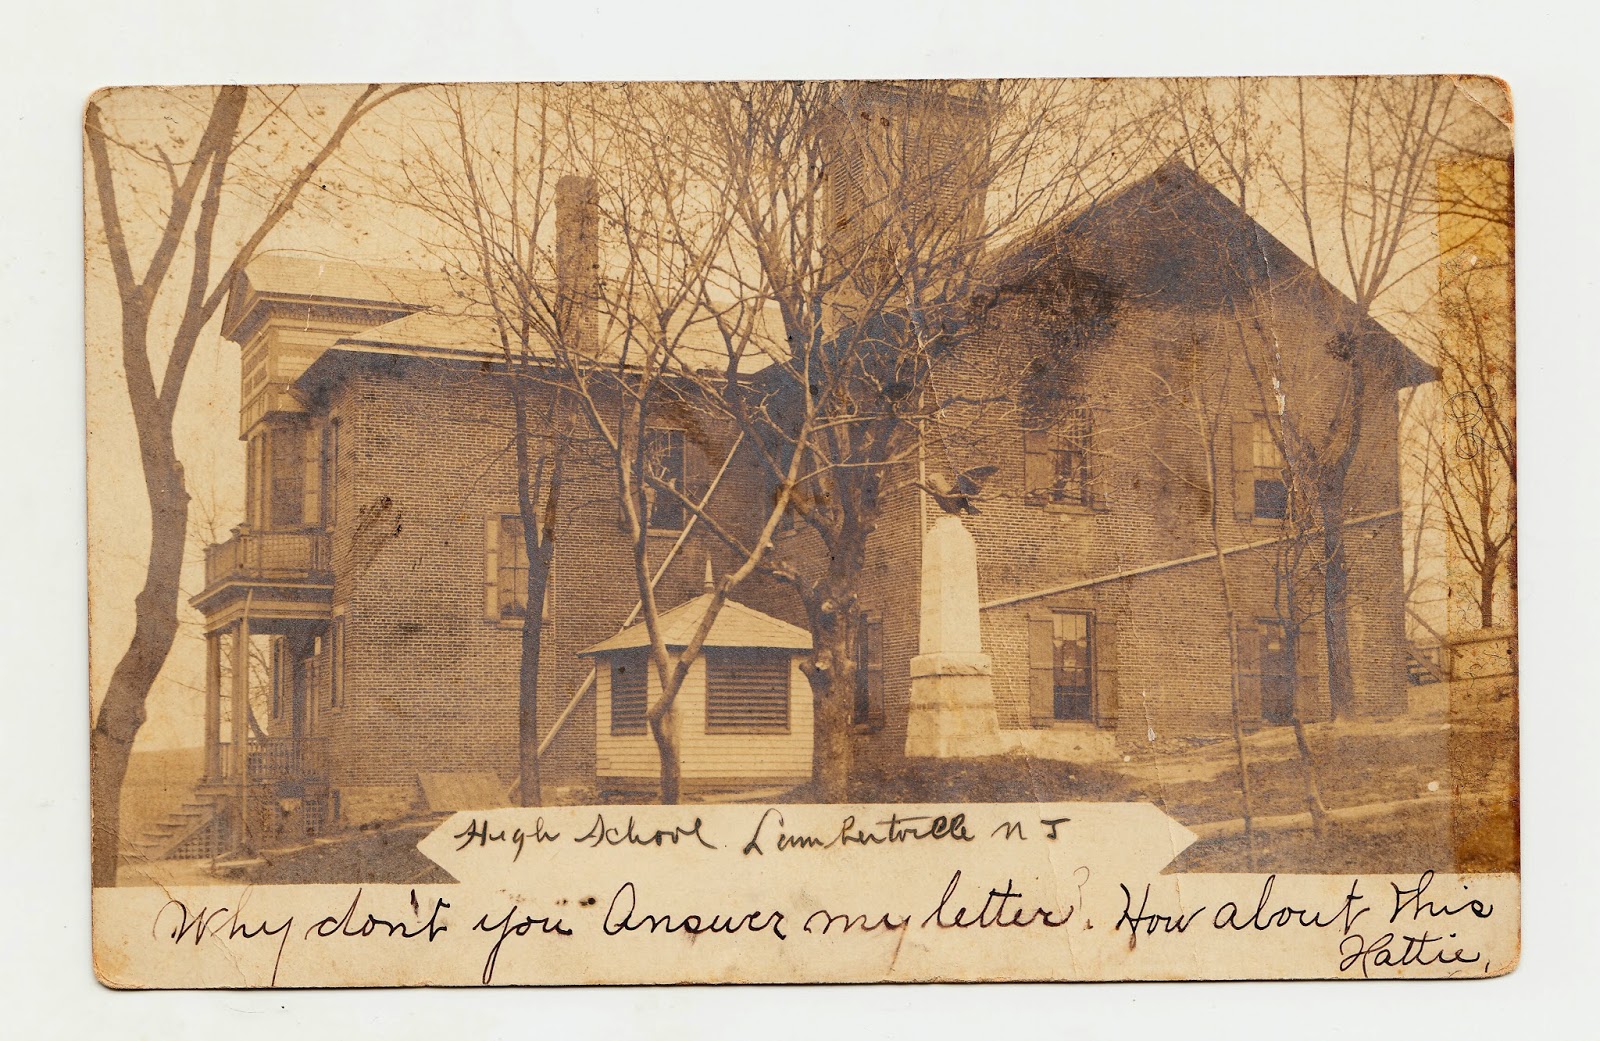 High School Lambertville N J
Why don't you Answer my letter? How about this
Hattie,